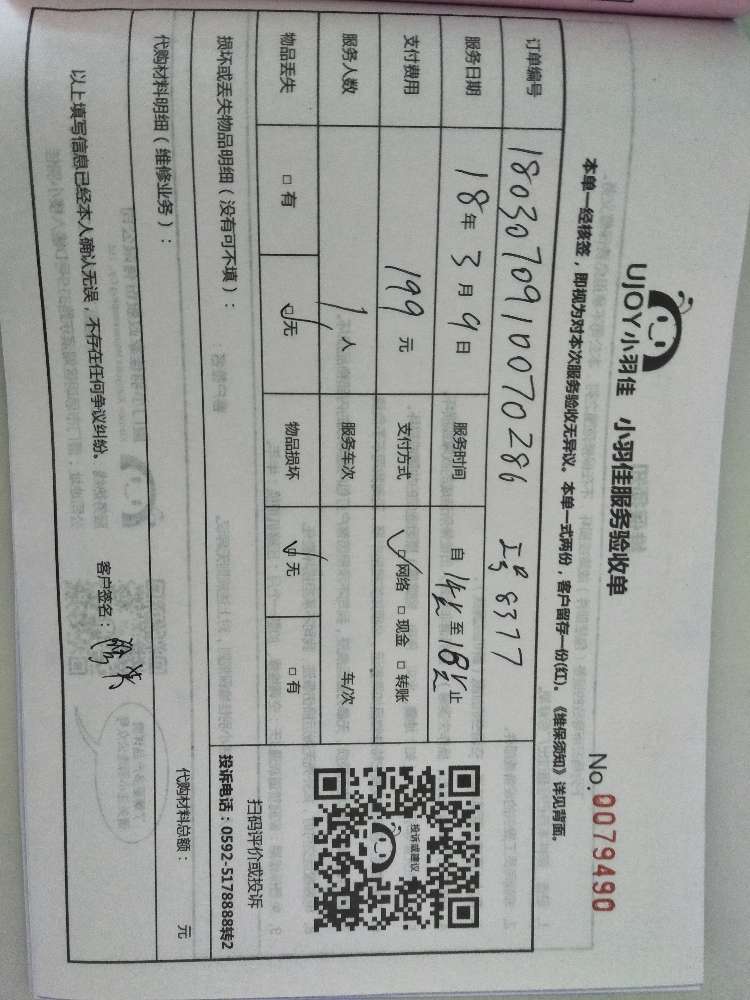 UJOY小羽佳 小羽佳服务验收单
No. 0079490
本单一经核签，即视为对本次服务验收无异议。本单一式两份，客户留存一份(红)。《维保须知》详见背面。
订单编号 1803070910070286 工号 8377
服务日期 18年3月9日 服务时间 自14点至18点止
支付费用 199元 支付方式 ☑网络 □现金 □转账
服务人数 1人 服务车次 车/次
物品丢失 □有 ☑无 物品损坏 ☑无 □有
投诉或建议
扫码评价或投诉
投诉电话：0592-5178888转2
损坏或丢失物品明细（没有可不填）：
代购材料明细（维修业务）： 代购材料总额： 元
以上填写信息已经本人确认无误，不存在任何争议纠纷。 客户签名：